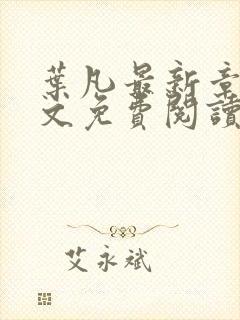 葉凡最新章
文免費閱讀
艾永斌